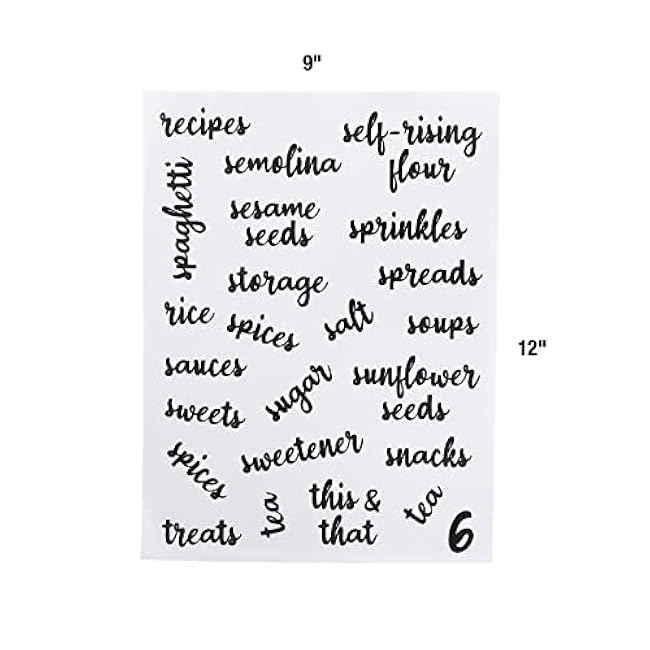 9"
recipes
self-rising
flour
semolina
spaghetti
sesame
seeds
sprinkles
storage
spreads
rice
spices
salt
soups
sauces
sugar
sunflower
seeds
sweets
spices
sweetener
snacks
treats
tea
this &
that
tea
6
12"